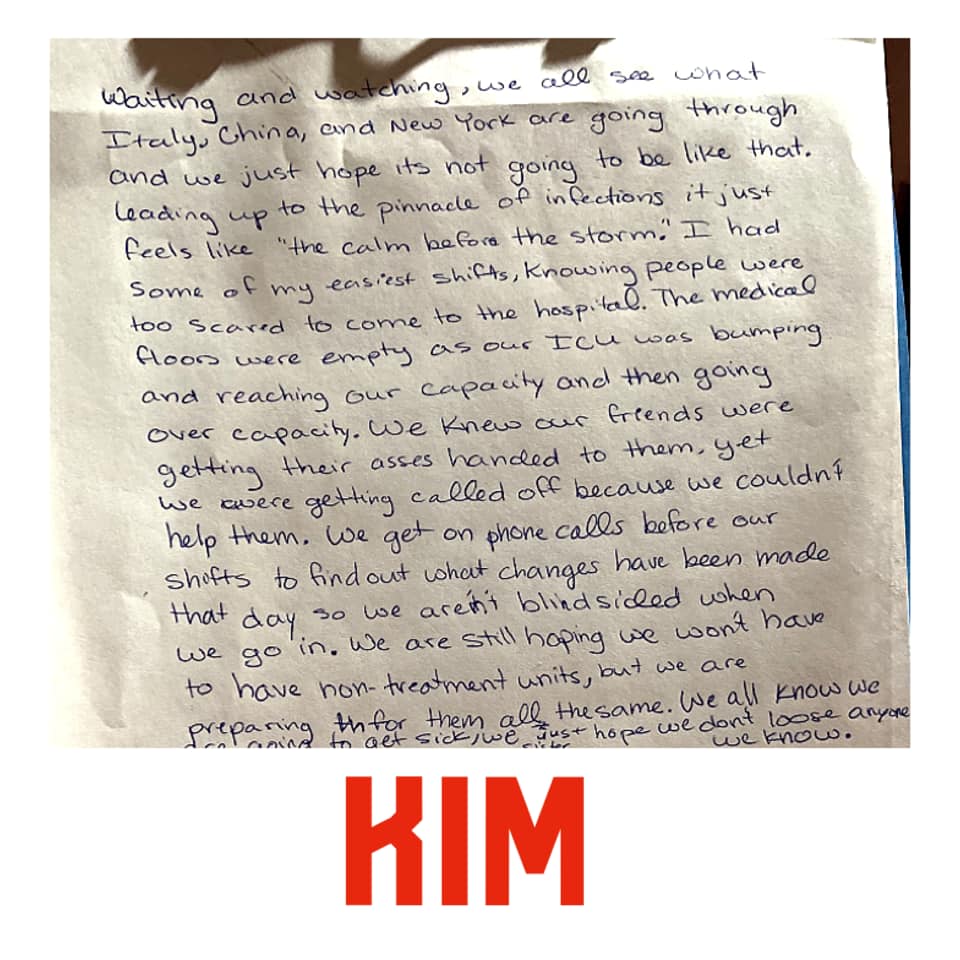 Waiting and watching, we all see what
Italy, China, and New York are going through
and we just hope its not going to be like that.
Leading up to the pinnacle of infections it just
feels like "the calm before the storm." I had
some of my easiest shifts, knowing people were
too scared to come to the hospital. The medical
floors were empty as our ICU was bumping
and reaching our capacity and then going
over capacity. We knew our friends were
getting their asses handed to them, yet
we were getting called off because we couldn't
help them. We get on phone calls before our
shifts to find out what changes have been made
that day so we aren't blindsided when
we go in. We are still hoping we won't have
to have non-treatment units, but we are
preparing for them all the same. We all know we
going to get sick, we just hope we don't loose anyone
we know.
KIM